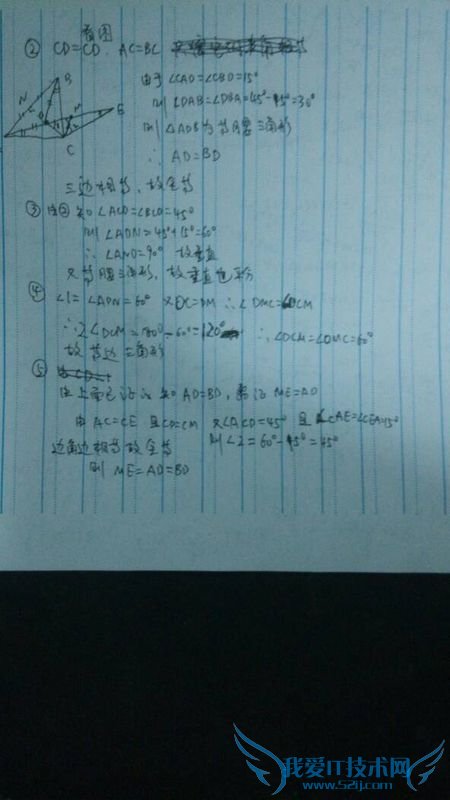 看图
② CD=CD. AC=BC
由于∠CAD=∠CBD=15°
则∠DAB=∠DBA=45°-15°=30°
则△ADB为等腰三角形
∴ AD=BD
三边相等，故全等
③ 知∠ACD=∠BCD=45°
则∠ADN=45°+15°=60°
∴∠AND=90° 故垂直
又等腰三角形，故垂直也平分
④ ∠1=∠ADN=60° 又DC=DM ∴∠DMC=∠DCM
∴2∠DCM=180°-60°=120° ∴∠DCM=∠DMC=60°
故等边三角形
⑤
由上面已证 知AD=BD，需证ME=AD
由AC=CE 且CD=CM 又∠ACD=45° 且∠CAE=∠CEA=15°
边角边相等故全等 则∠2=60°-15°=45°
则ME=AD=BD
B
N
E
D
M
C
我爱IT技术网
www.52ij.com